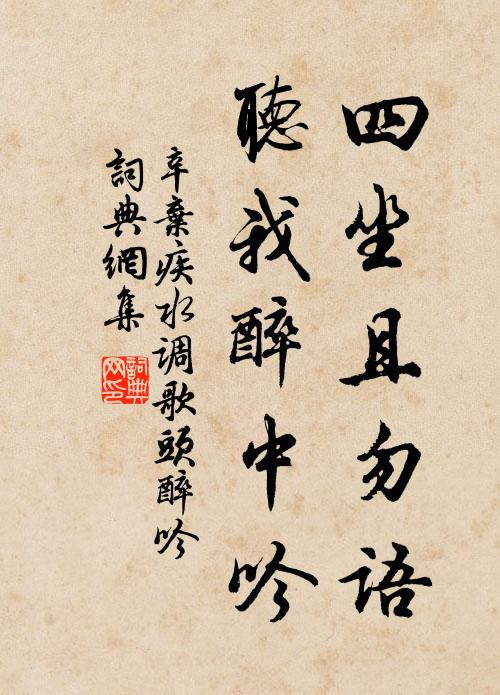 四坐且勿语
聽我醉中吟
辛棄疾水调歌頭醉吟
詞典網集
詞典网印